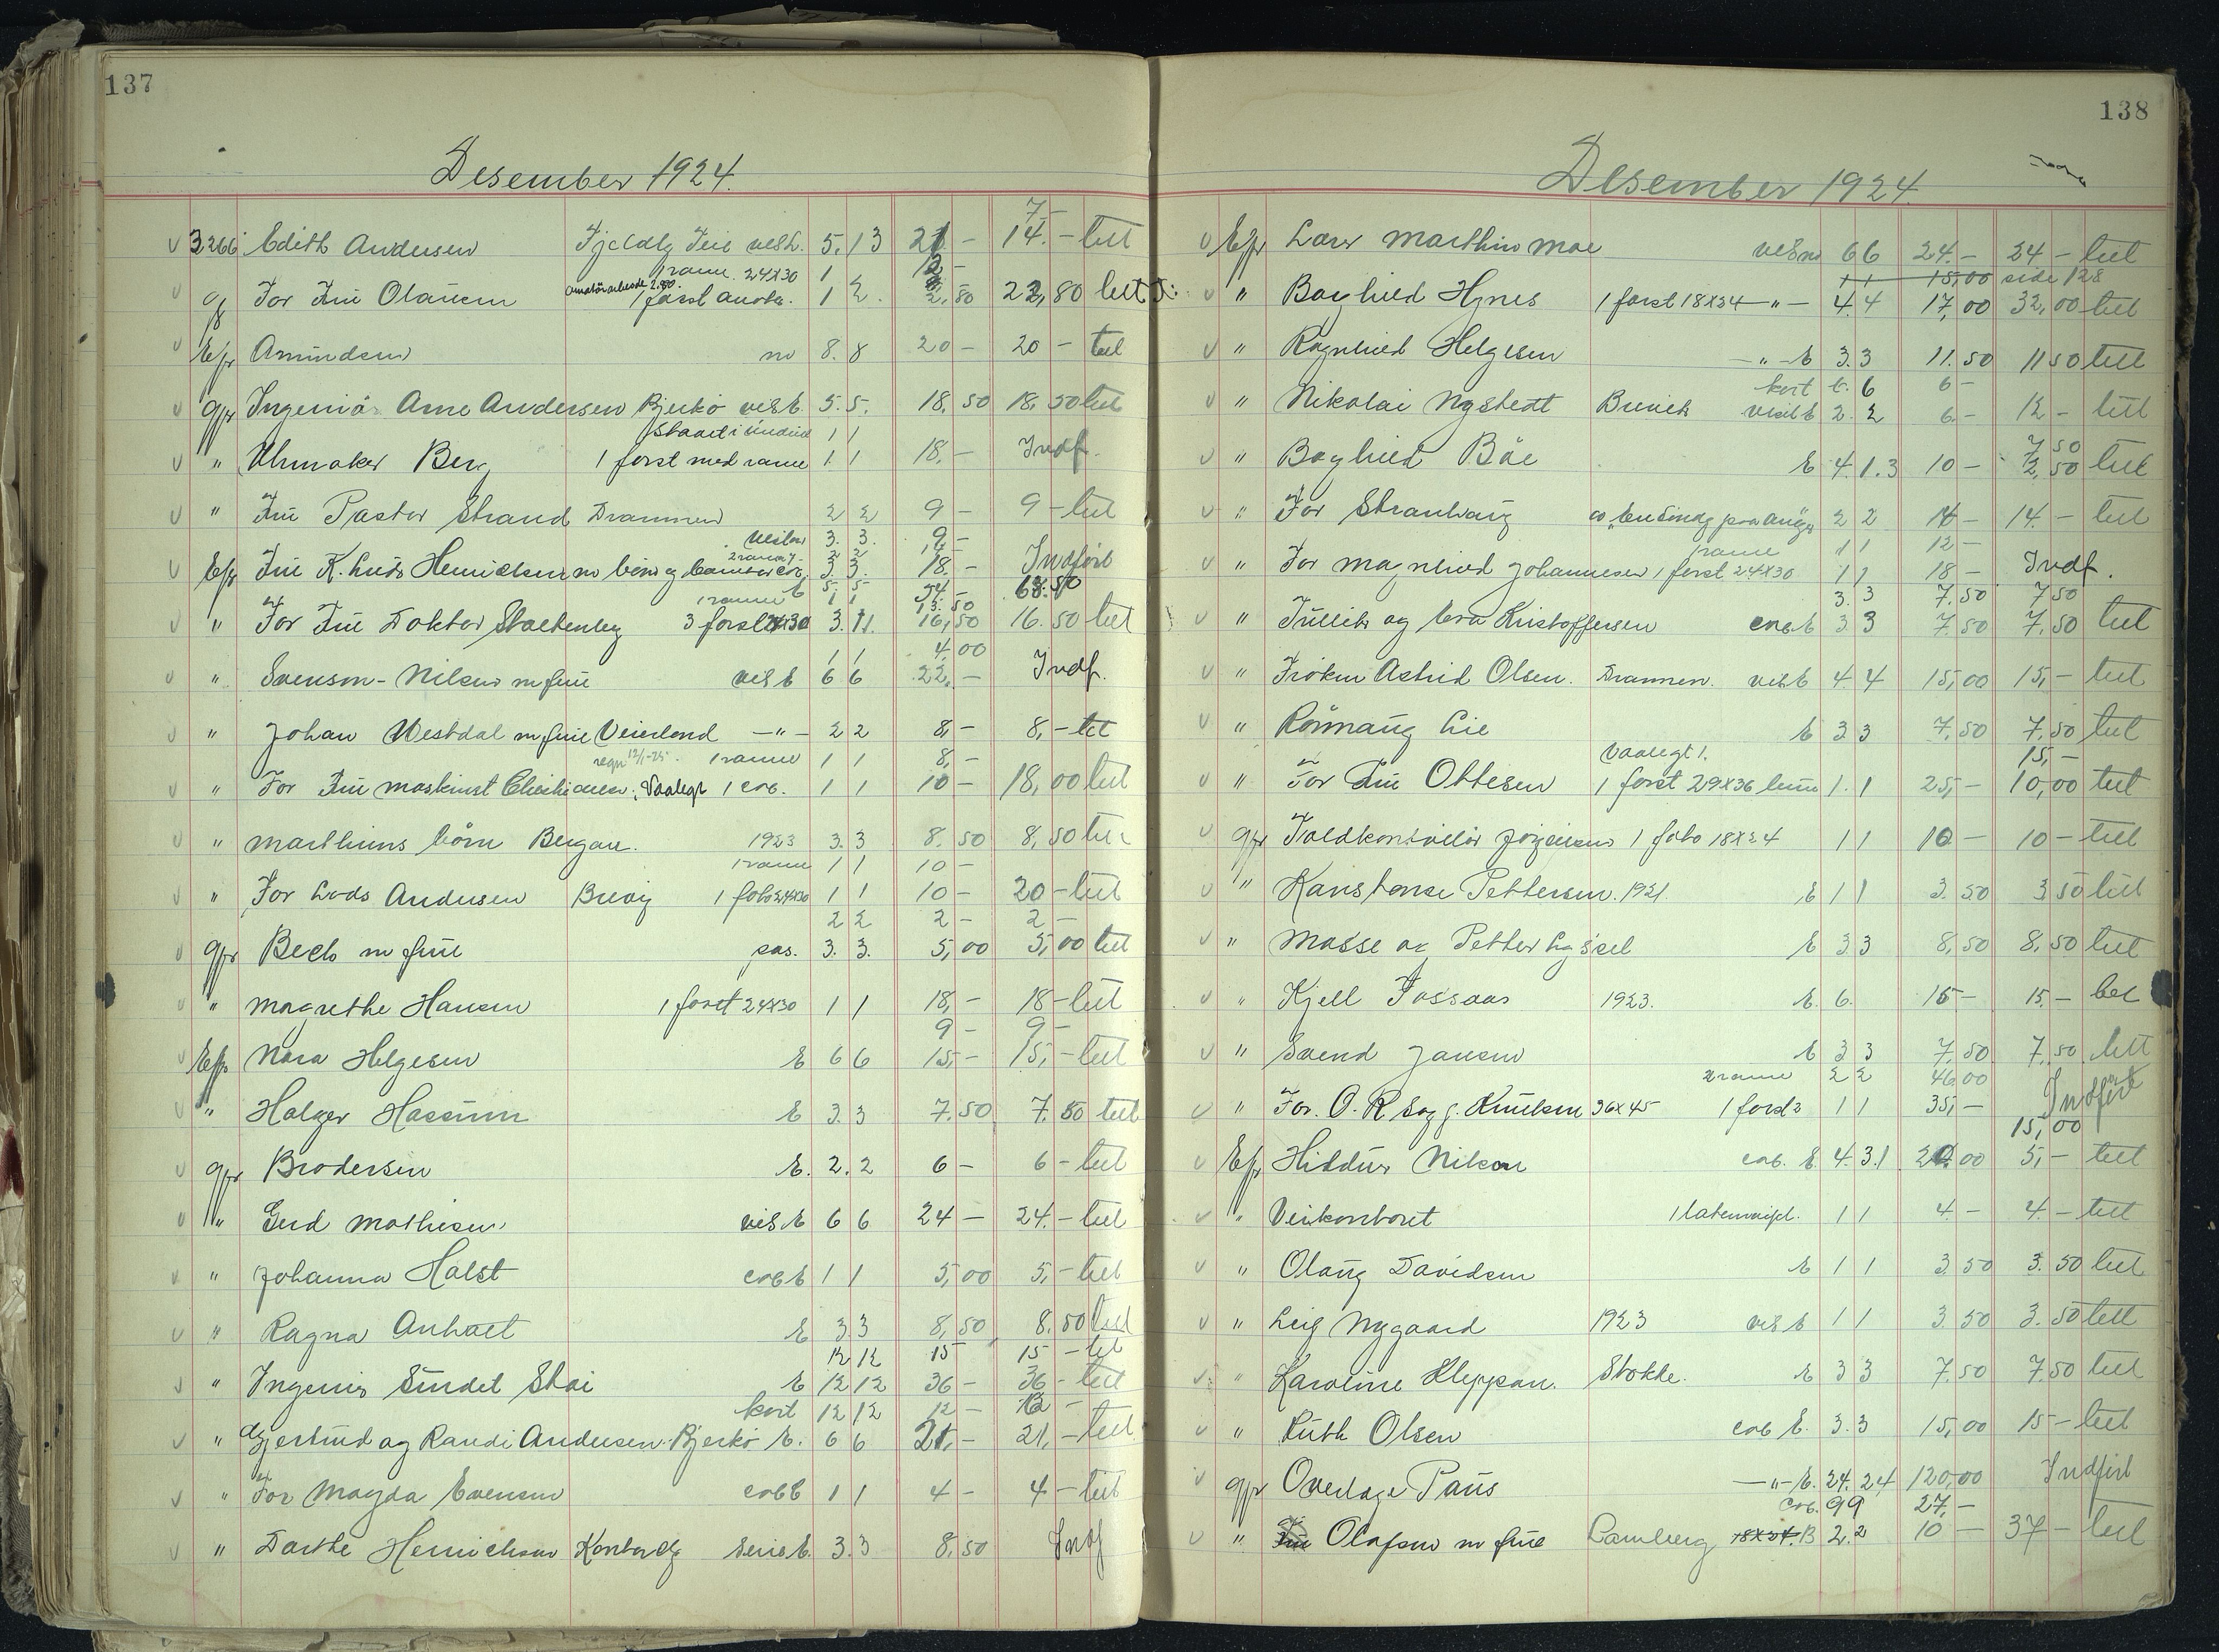 137
Desember 1924.
3266 Edith Andersen Fjeldlg Teie vish. 5. 13 21 - 7- 14. - bet
1 rame. 24x30 1 12 -
gp For Fru Olausen amatörarbeide 2.80. 1 forst. 1 2. 2,80 22,80 bet
Epr Amundsen m 8. 8 20 - 20 - bet
gpr Ingeniör Arne Andersen Bjerkö vis E. 5. 5. 18,50 18,50 bet
1 1
" Uhrmaker Berg 1 forst med rame 1. 1 18. - Indf.
" Fru Pastor Strand Drammen 2 2 9 - 9 - bet
3. 3. 9. -
2 rame 2 2
Epr Fru K. Henriksen m börn og cab. 3. 3. 18 - Indfört
E 5. 5 54 - 68.50
1 rame 1 1 13.50
" For Fru Doktor Stoltenberg 3 forst 24x30 3. 11. 16,50 16.50 bet
1 1 4.00
" Svenson-Nilsen m frue vis E 6 6 22. - Indf.
" Johan Westdal m frue Veierland - " - 2 2 8, - 8, - bet
regn 12/1-25. 1 rame 1 1 8, -
" For Fru maskinist Christiansen, Vaalegt 1 cab. 1 1 10 - 18,00 bet
" Marthins börn Bergan. 1923 3. 3 8.50 8,50 bet
1 rame 1 1 10 -
" For Lods Andersen Brevig 1 foto 24x30 1 1 10 - 20 - bet
2 2 2 - 2 -
gpr Bech m frue pas. 3. 3. 5,00 5,00 bet
" Magrethe Hansen 1 forst 24x30 1 1 18, - 18 - bet
9 - 9 -
Epr Nora Helgesen E 6 6 15, - 15, - bet
" Holger Hassum E 3. 3 7.50 7.50 bet
gpr Brodersen E. 2. 2 6 - 6 - bet
" Gerd Mathisen vis E 6 6 24 - 24. - bet
" Johanna Holst cab E 1 1 5,00 5, - bet
" Ragna Anholt E 3 3 8,50 8.50 bet
12 12 15 15 - bet
" Ingeniör Sundet Stoi E 12 12 36 - 36 - bet
kort 12 12 12 - 12 -
" Gjertrud og Randi Andersen. Bjerkö E. 6 6 21, - 21, - bet
" For Magda Evensen cab E 1 1 4 - 4 - bet
" Dorthe Henriksen Kontordg Serie E. 3. 3 8,50 Indf
138
Desember 1924.
Epr Lars Marthin Moe vis m 6 6 24. - 24 - bet
1 1 15,00 side 128
" Borghild Hynes 1 forst 18x24 - " - 4. 4 17,00 32,00 bet
" Ragnhild Helgesen - " - E 3. 3 11.50 11 50 bet
kort 6. 6 6 -
" Nikolai Nystedt Brevik visit E 2. 2 6 - 12 - bet
7 50
" Borghild Böe E 4. 1. 3 10 - 2,50 bet
" For Stranberg 2 2 14 - 14. - bet
1 rame 1 1 12 -
" For Magnhild Johannesen 1 forst 24x30 1 1 18 - Indf.
3. 3 7.50 7 50
" og Eva Kristoffersen cab E 3 3 7.50 7.50 bet
" Fröken Astrid Olsen. Drammen. vis E 4. 4 15,00 15, - bet
" Rönnaug Lie E 3 3 7,50 7,50 bet
Vaalegt 1. 15, -
" For Fru Ottesen 1 forst 29x36 1. 1 25, - 10,00 bet
gpr Toldkontrollör Jörgensen 1 foto 18x24 1 1 10 - 10 - bet
" Konstanse Pettersen. 1921. E 1 1 3.50 3 50 bet
" Masse og Petter E 3 3 8,50 8,50 bet
" Kjell Fossaas 1923. E. 6. 15 - 15. - bet
" Svend Jansen E 3 3 7,50 7,50 bet
2 rame 2 2 46.00
" For. O. R. Knutsen 36x45 1 forst 1 1 35, - Indfört
15,00
Epr Hiddur Nilsen cab. E. 4. 3. 1 20.00 5, - bet
" Veikontoret 1 1 4. - 4. - bet
" Olaug Davidsen E 1 1 3 50 3. 50 bet
" Leif Nygaard 1923 vis E 1 1 3.50 3.50 bet
" Karoline Kleppan. Stokke. E 3 3 7.50 7.50 bet
" Ruth Olsen cab E. 3. 3 15,00 15 - bet
gpr Overlæge Paus - " - E. 24. 24 120,00 Indfört
cab. 9 9 27, -
" Olafsen m frue Ramberg 18x24. B 2. 2 10 - 37 - bet